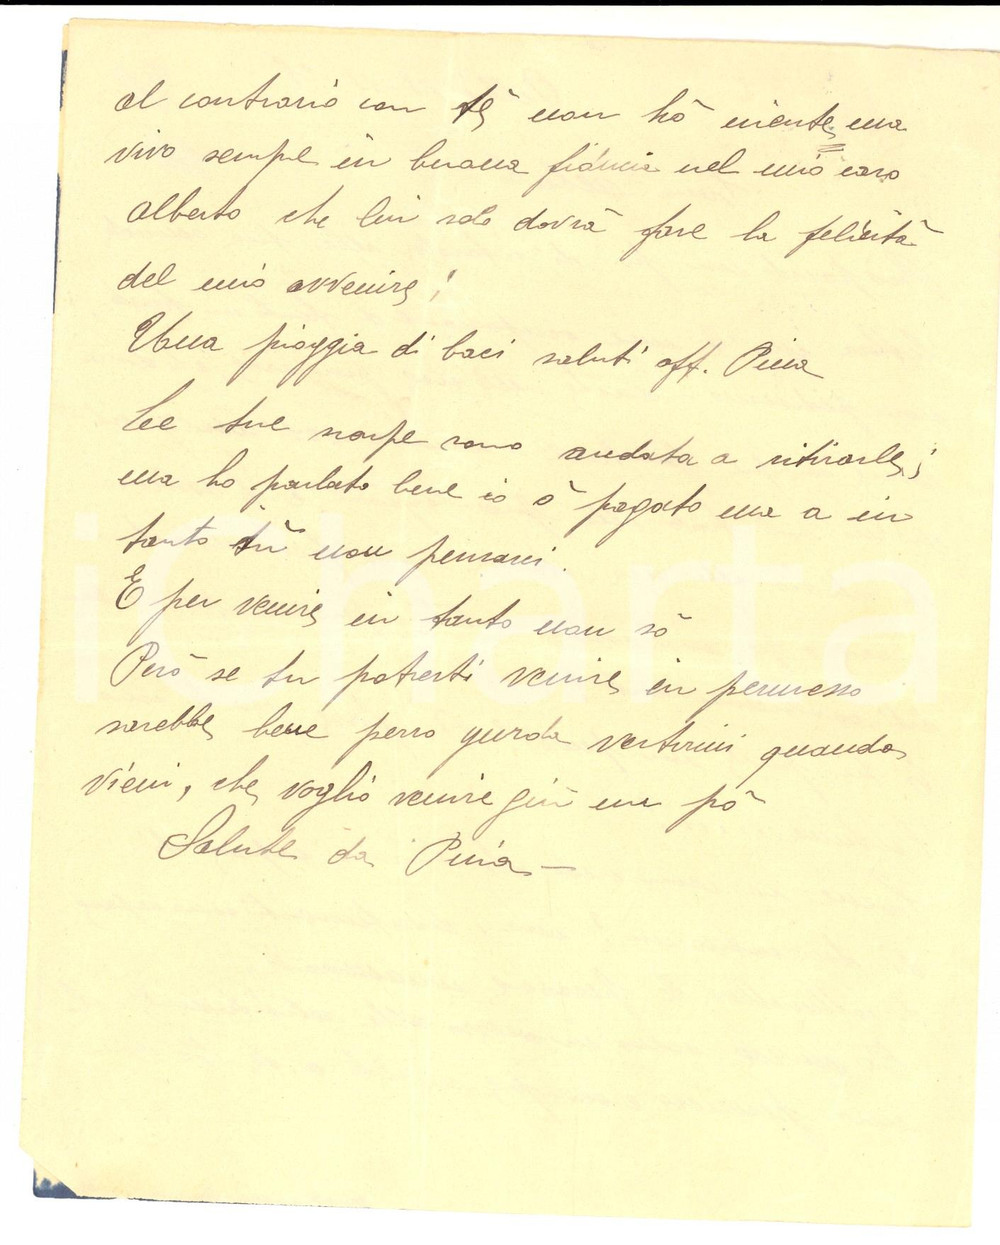 al contrario con tè non hò niente, ma
vivo sempre in buona fiducia nel mio caro
Alberto che lui solo dovrà fare la felicità
del mio avvenire!
Una pioggia di baci saluti aff. Pina
Le tue scarpe sono andata a ritirarle;
ma ho parlato bene io ò pagato ma a in
tanto tù non pensarci.
E per venire in tanto non sò
Però se tu potresti venire in permesso
sarebbe bene perro gurda vestirmi quando
vieni, che voglio venire giù un pò
Salute da Pina
iCharta